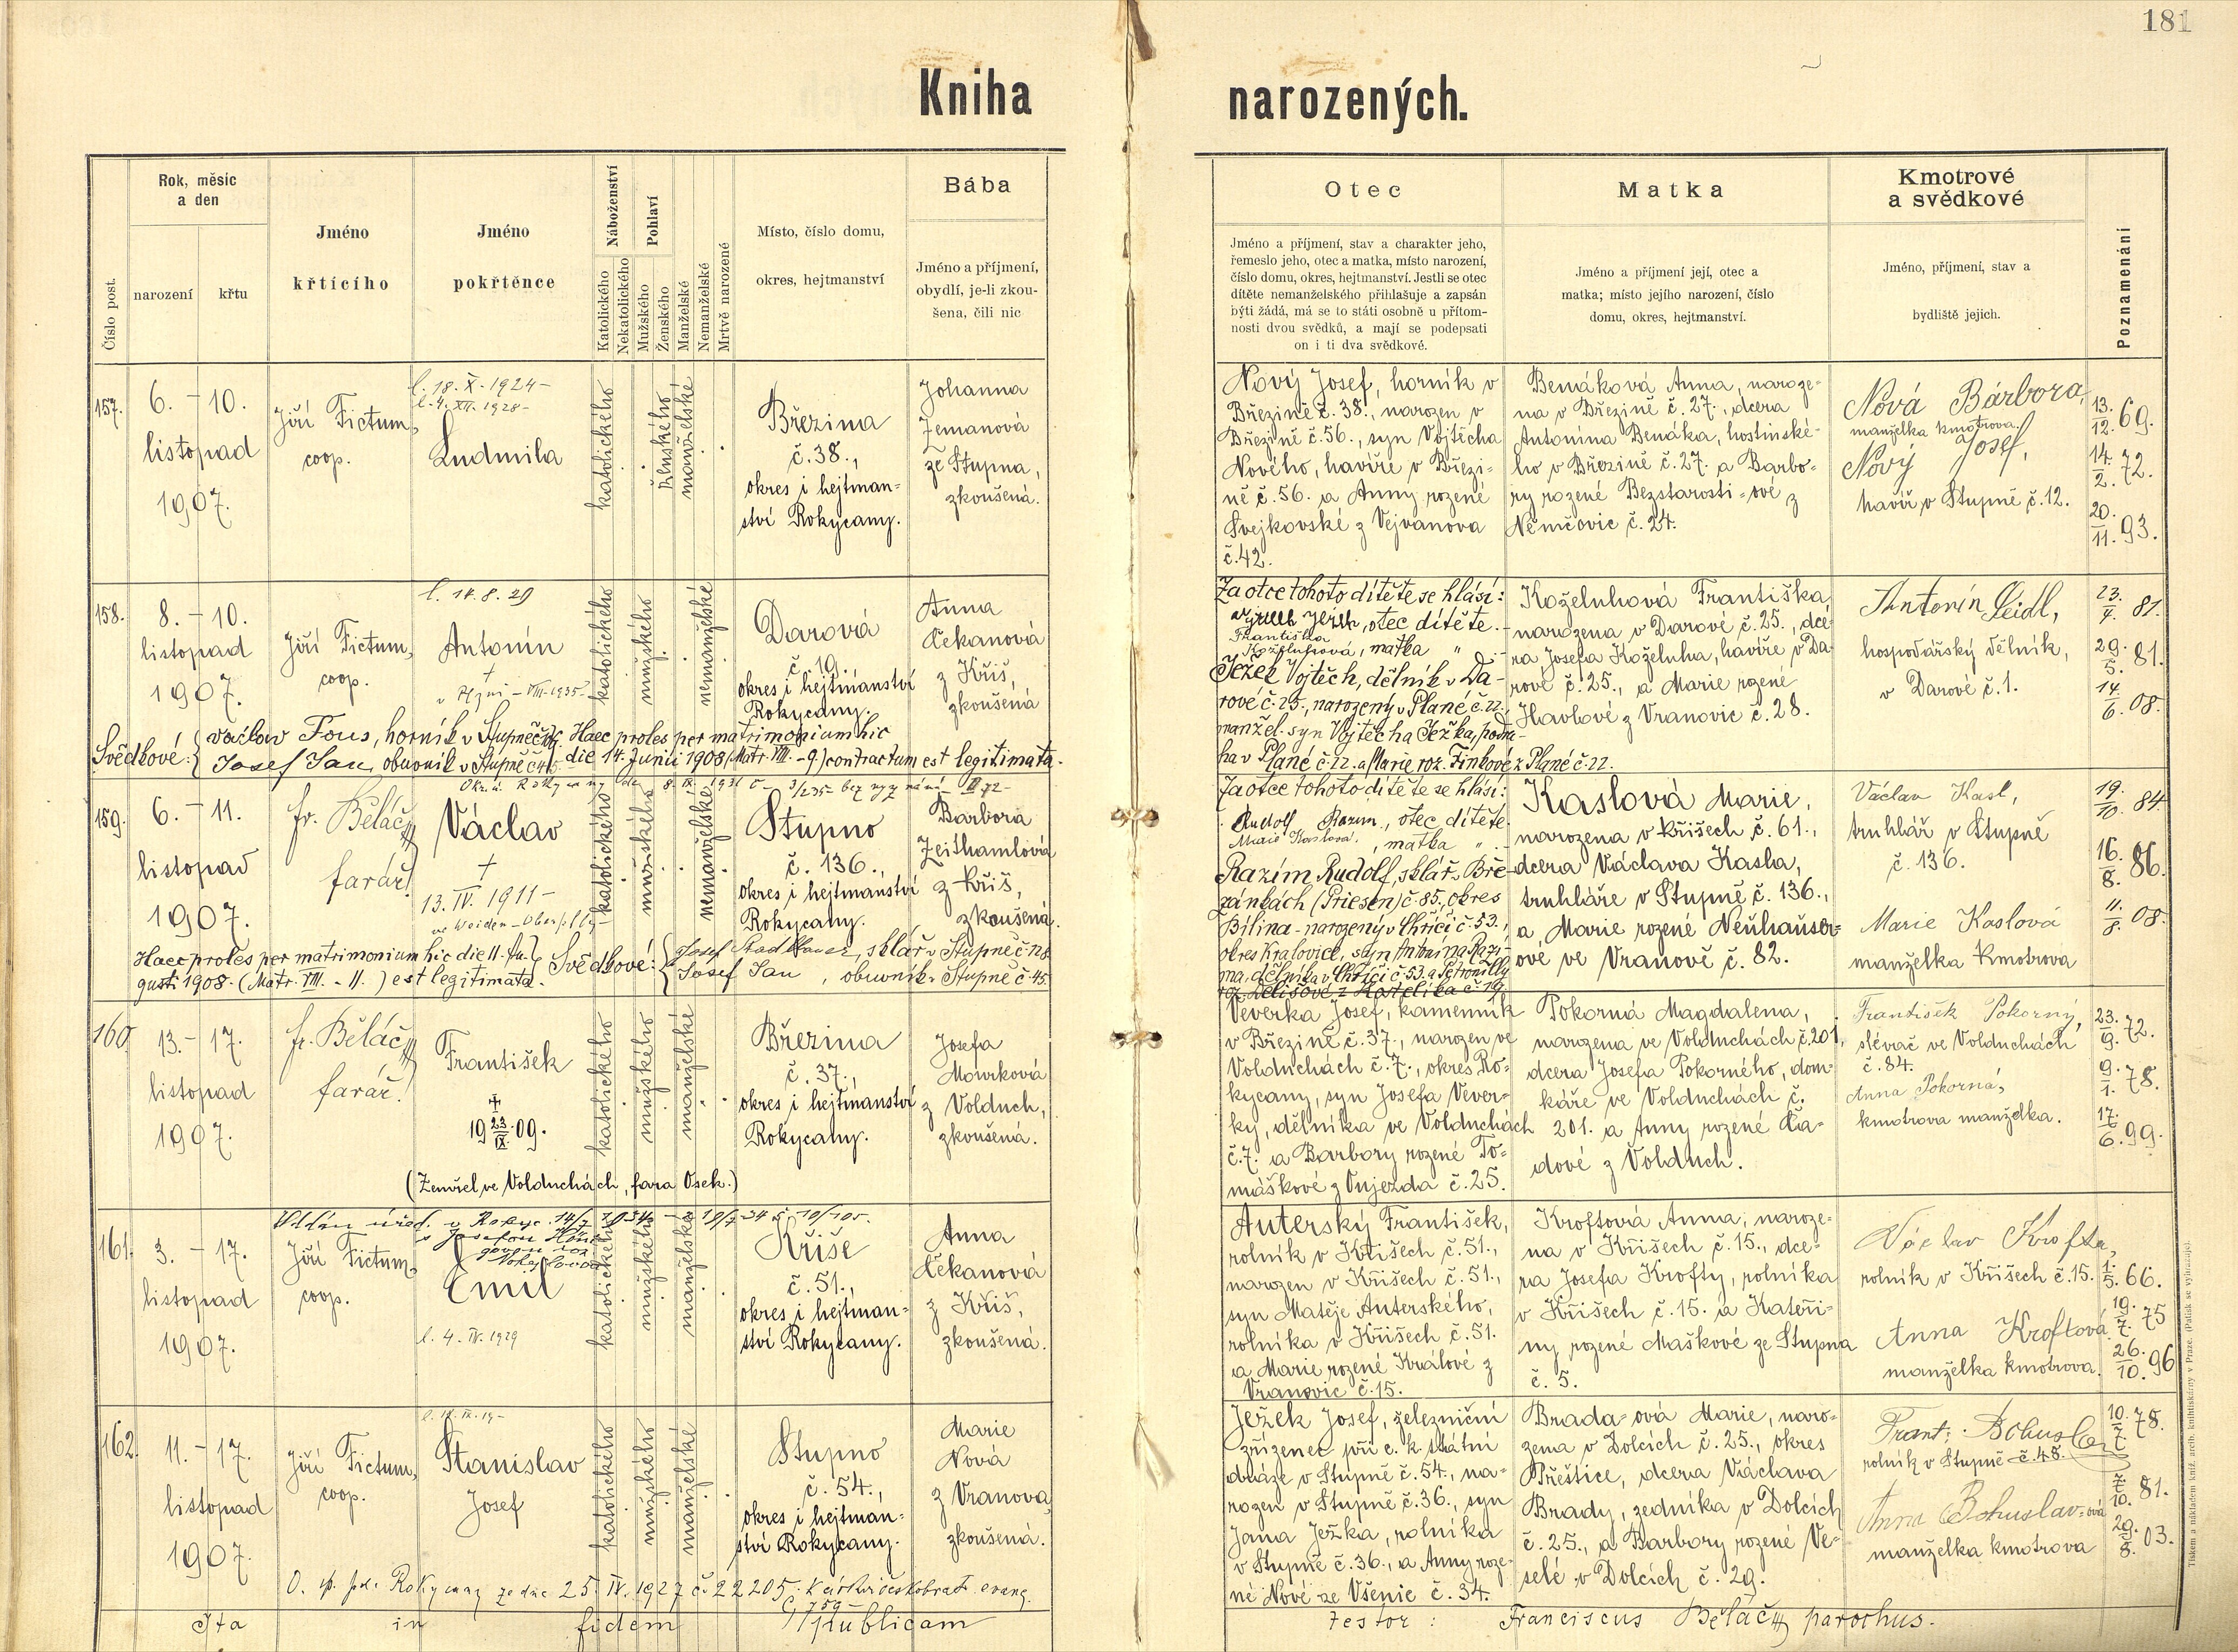 181
Kniha narozených.
Číslo post.
Rok, měsíc
a den
narození
křtu
Jméno
křtícího
Jméno
pokřtěnce
Náboženství
Katolického
Nekatolického
Pohlaví
Mužského
Ženského
Manželské
Nemanželské
Mrtvě narozené
Místo, číslo domu,
okres, hejtmanství
Bába
Jméno a příjmení,
obydlí, je-li zkou-
šena, čili nic
Otec
Jméno a příjmení, stav a charakter jeho,
řemeslo jeho, otec a matka, místo narození,
číslo domu, okres, hejtmanství. Jestli se otec
dítěte nemanželského přihlašuje a zapsán
býti žádá, má se to státi osobně u přítom-
nosti dvou svědků, a mají se podepsati
on i ti dva svědkové.
Matka
Jméno a příjmení její, otec a
matka; místo jejího narození, číslo
domu, okres, hejtmanství.
Kmotrové
a svědkové
Jméno, příjmení, stav a
bydliště jejich.
Poznamenání
157.
6. – 10.
listopad
1907.
Jiří Fictum,
coop.
l. 18. X. 1924 –
l. 4. XII. 1928 –
Ludmila
katolického
ženského
manželské
Březina
č. 38.,
okres i hejtman-
ství Rokycany.
Johanna
Zemanová
ze Stupna,
zkoušená.
Nový Josef, horník v
Březině č. 38., narozen v
Březině č. 56., syn Vojtěcha
Nového, havíře v Březi-
ně č. 56. a Anny rozené
Švejkovské z Vejvanova
č. 42.
Benáková Anna, naroze-
na v Březině č. 27., dcera
Antonína Benáka, hostinské-
ho v Březině č. 27. a Barbo-
ry rozené Bezstarosti-ové z
Němčovic č. 24.
Nová Bárbora,
manželka kmotrova.
Nový Josef,
havíř v Stupně č. 12.
13./12. 69.
14./2. 72.
20./11. 93.
158.
8. – 10.
listopad
1907.
Jiří Fictum,
coop.
l. 14. 8. 29
Antonín
†
v Plzni – VIII – 1935 –
katolického
mužského
nemanželské
Darová
č. 19.,
okres i hejtmanství
Rokycany.
Anna
Čekanová
z Kříš,
zkoušená
Za otce tohoto dítěte se hlásí:
Ježek, otec dítěte.
Františka
Koželuhová, matka "
Ježek Vojtěch, dělník v Da-
rové č. 25., narozený v Plané č. 22.,
manžel. syn Vojtěcha Ježka,
v Plané č. 22. a Marie roz. Finkové z Plané č. 22.
Koželuhová Františka
narozena v Darové č. 25., dce-
ra Josefa Koželuha, havíře v Da-
rové č. 25., a Marie rozené
Havlové z Vranovic č. 28.
Antonín Seidl,
hospodářský dělník,
v Darové č. 1.
23./4. 81.
29./5. 81.
14./6. 08.
Svědkové: { Václav Fous, horník v Stupně
Josef Jan, obuvník v Stupně č. 45.
Haec proles per matrimonium hic
die 14. Junii 1908 (Matr. VIII. – 9) contractum est legitimata.
159.
6. – 11.
listopad
1907.
fr. Běláč
farář.
Václav
†
13. IV. 1911 –
ve Weiden – Oberpfalz –
katolického
mužského
nemanželské
Stupno
č. 136.,
okres i hejtmanství
Rokycany.
Barbora
Zeithamlová
z Kříš,
zkoušená.
Za otce tohoto dítěte se hlásí:
Rudolf Razím, otec dítěte
Marie Kaslová, matka "
Razím Rudolf, sklář v Bře-
zánkách (Priesen) č. 85, okres
Bílina – narozený v Chříči č. 53.,
okres Kralovice, syn Antonína Razí-
ma, dělníka v Chříči č. 53. a Petronilly
Kaslová Marie,
narozena v Kříších č. 61.,
dcera Václava Kasla,
truhláře v Stupně č. 136.,
a Marie rozené Neuhauser-
ové ve Vranově č. 82.
Václav Kasl,
truhlář v Stupně
č. 136.
Marie Kaslová
manželka kmotrova
19./10. 84.
16./8. 86.
11./8. 08.
Haec proles per matrimonium hic die 11. Au-
gusti 1908. (Matr. VIII. – 11.) est legitimata.
Svědkové: { Josef , sklář v Stupně č. 128
Josef Jan, obuvník v Stupně č. 45.
160.
13. – 17.
listopad
1907.
fr. Běláč
farář.
František
†
19 23./IX. 09.
(Zemřel ve Volduchách, fara Osek.)
katolického
mužského
manželské
Březina
č. 37.,
okres i hejtmanství
Rokycany.
Josefa
Mourková
z Volduch,
zkoušená.
Veverka Josef, kamenník
v Březině č. 37., narozen ve
Volduchách č. 7., okres Ro-
kycany, syn Josefa Vever-
ky, dělníka ve Volduchách
č. 7. a Barbory rozené To-
máškové z Vujezda č. 25.
Pokorná Magdalena,
narozena ve Volduchách č. 201,
dcera Josefa Pokorného, dom-
káře ve Volduchách č.
201. a Anny rozené Ča-
dové z Volduch.
František Pokorný,
slévač ve Volduchách
č. 84.
Anna Pokorná,
kmotrova manželka.
23./9. 72.
9./1. 78.
17./6. 99.
161.
3. – 17.
listopad
1907.
Jiří Fictum,
coop.
Emil
l. 4. IV. 1929
katolického
mužského
manželské
Kříše
č. 51.,
okres i hejtman-
ství Rokycany.
Anna
Čekanová
z Kříš,
zkoušená.
Auterský František,
rolník v Kříších č. 51.,
narozen v Kříších č. 51.,
syn Matěje Auterského,
rolníka v Kříších č. 51.
a Marie rozené Králové z
Vranovic č. 15.
Kroftová Anna, naroze-
na v Kříších č. 15., dce-
ra Josefa Krofty, rolníka
v Kříších č. 15. a Kateři-
ny rozené Maškové ze Stupna
č. 5.
Václav Krofta,
rolník v Kříších č. 15.
Anna Kroftová
manželka kmotrova.
1./5. 66.
19./7. 75
26./10. 96
162.
11. – 17.
listopad
1907.
Jiří Fictum,
coop.
Stanislav
Josef
katolického
mužského
manželské
Stupno
č. 54.,
okres i hejtman-
ství Rokycany.
Marie
Nová
z Vranova
zkoušená.
Ježek Josef, železniční
zřízenec při c. k. státní
dráze v Stupně č. 54., na-
rozen v Stupně č. 36., syn
Jana Ježka, rolníka
v Stupně č. 36., a Anny roze-
né Nové ze Všenic č. 34.
Brada-ová Marie, naro-
zena v Dolcích č. 25., okres
Přeštice, dcera Václava
Brady, zedníka v Dolcích
č. 25., a Barbory rozené Ve-
selé v Dolcích č. 29.
Frant. Bohuslav
rolník v Stupně č. 48.
Anna Bohuslav-ová
manželka kmotrova
10./7. 78.
7./10. 81.
29./8. 03.
Rokycany ze dne 25. IV. 1927 č. 22205
Ita in fidem publicam
testor: Franciscus Běláč parochus.